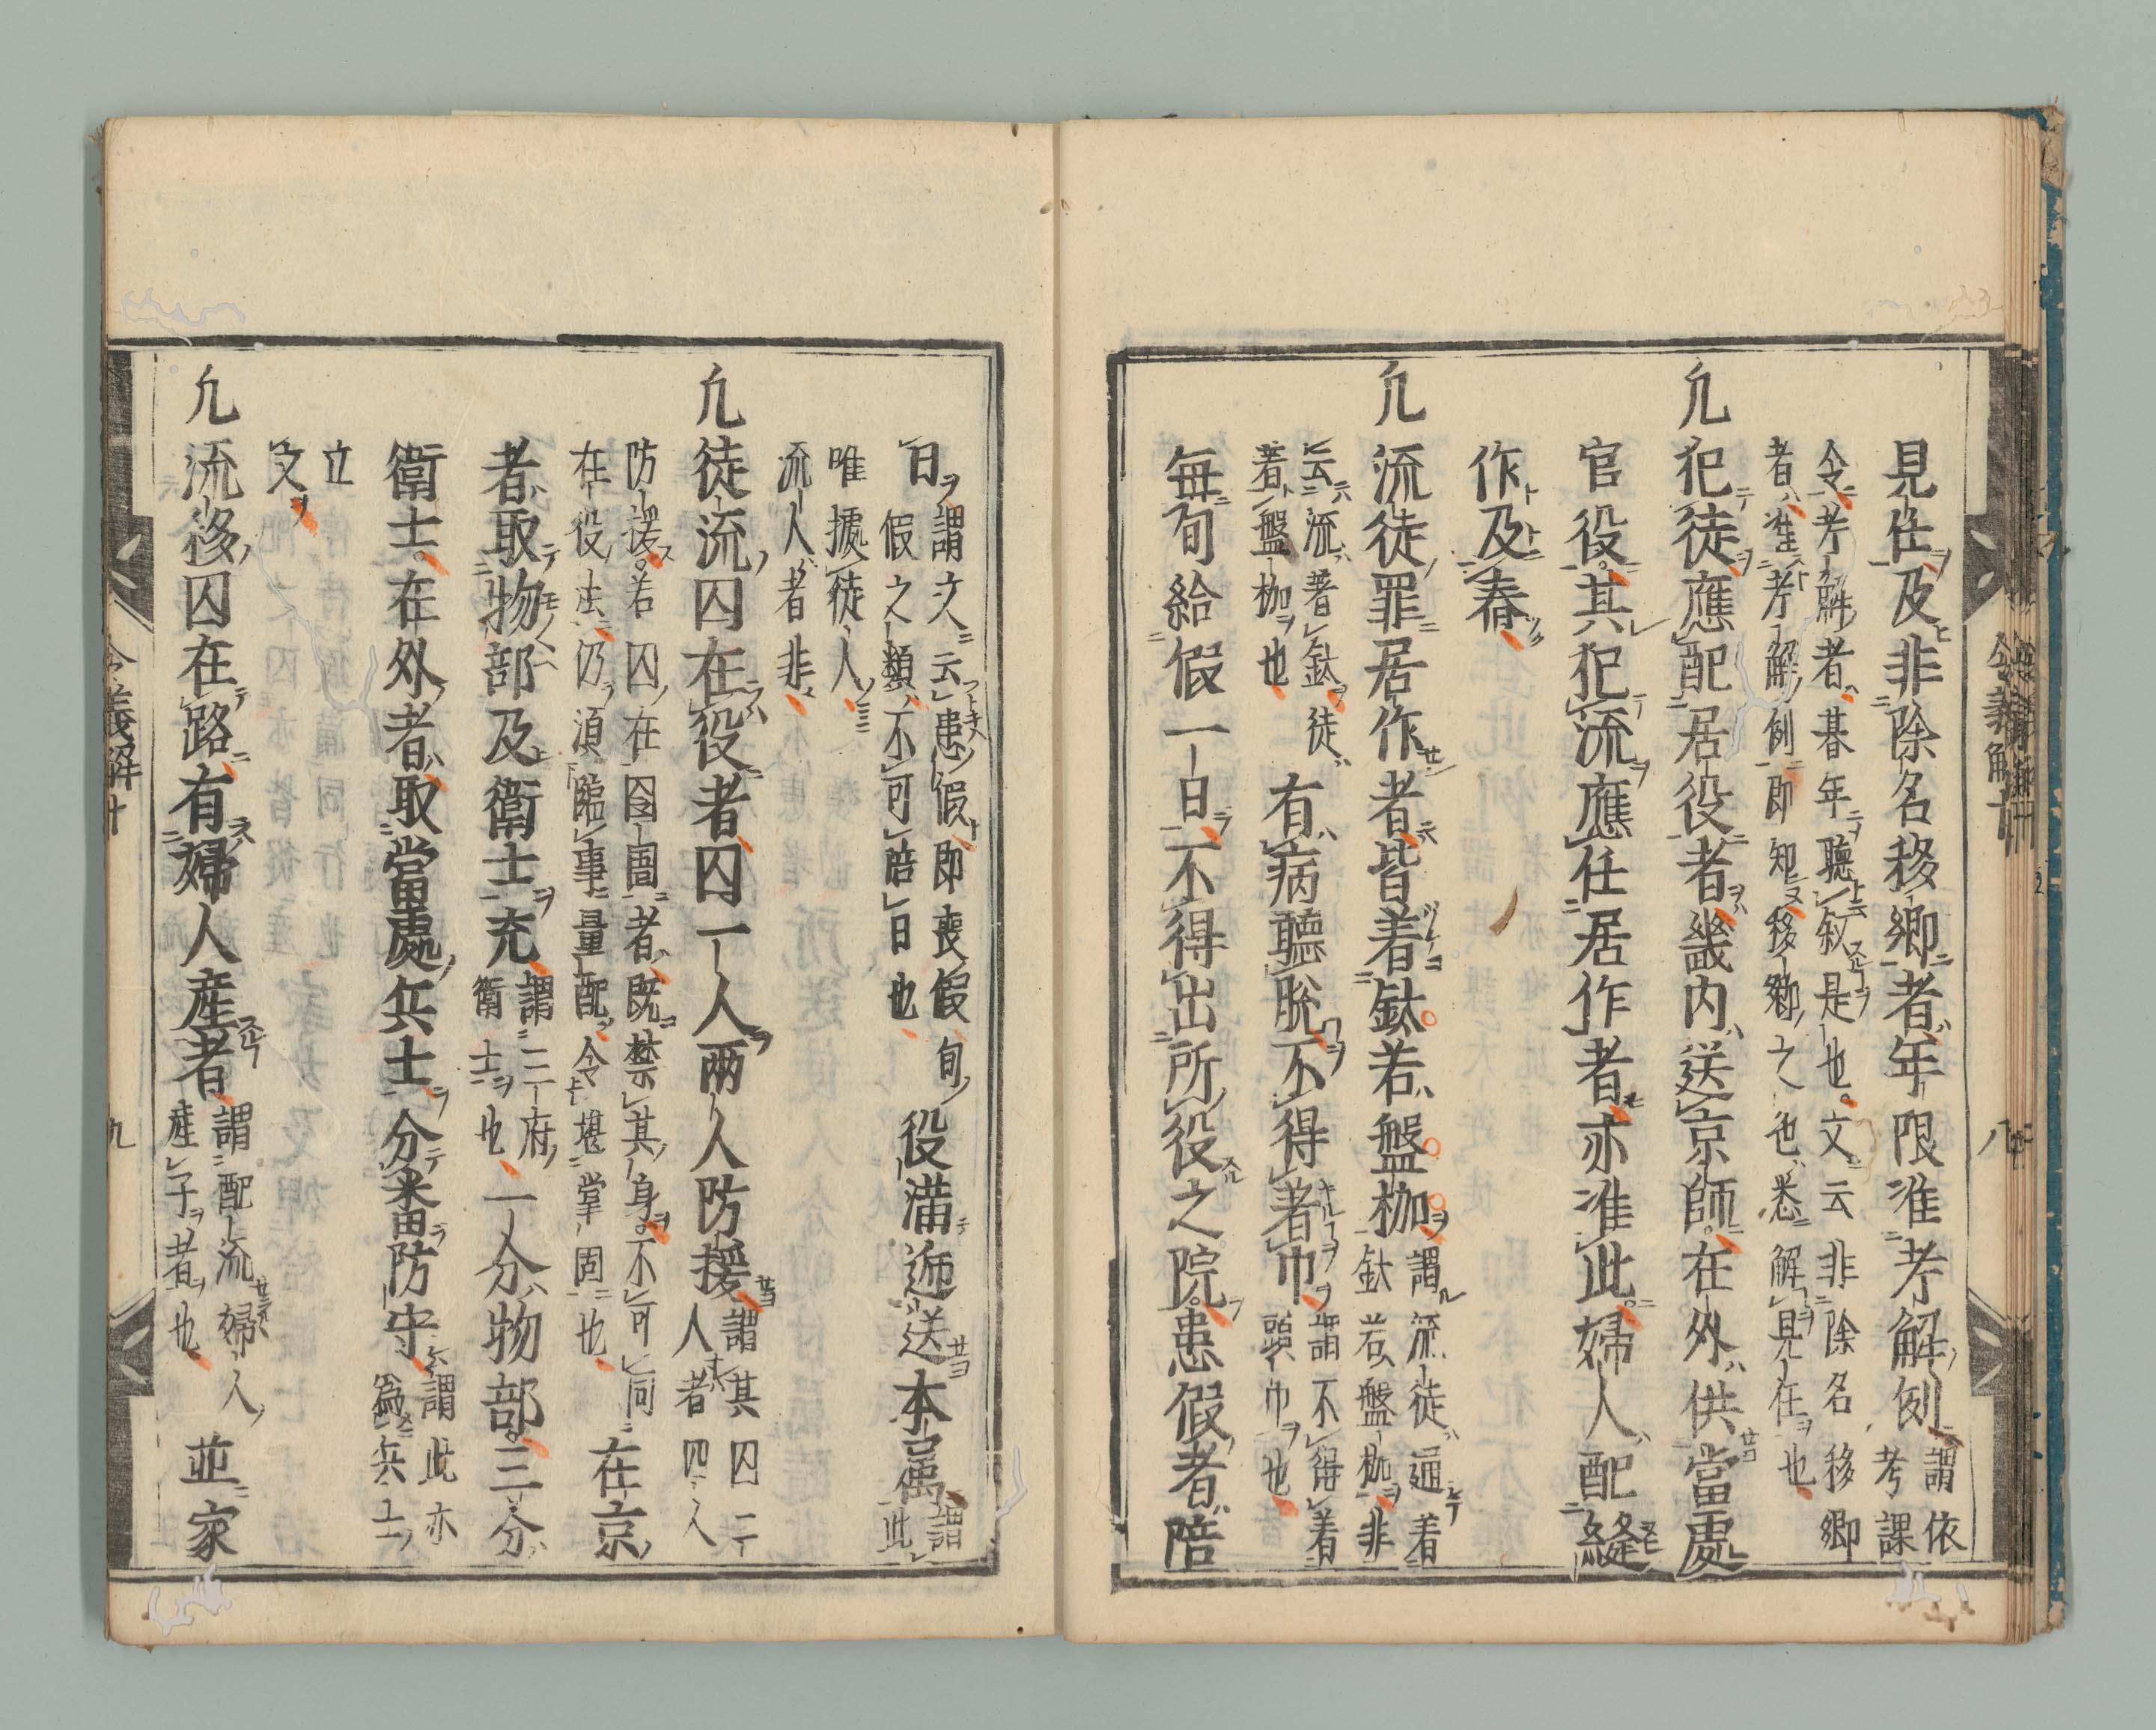 見仕及非除名移鄉者年限准考解例謂依考課
令考解者朞年聽叙是也文云非除名移鄉
者准考解例即知移鄉之色悉解見在也
凢犯徒應配居役者畿内送京師在外供當處
官役其犯流應住居作者亦准此婦人配縫
作及舂
凢流徒罪居作者皆着鈦若盤枷謂流徒通着鈦若盤枷非
云流著鈦徒著盤枷也有病聽脫不得著巾謂不得着頭巾也
每旬給假一日不得出所役之院患假者陪
日謂文云患假即喪假旬假之類不可陪日也役滿逓送本属謂此
唯據徒人流人者非
凢徒流囚在役者囚一人兩人防援謂其囚二人者四人
防援若囚在囹圄者既禁其身不可同
在役法仍須臨事量配令堪掌固也在京
者取物部及衛士充謂二府衛士也一分物部三分
衛士在外者取當處兵士分番防守謂此亦爲兵士
立文
凢流移囚在路有婦人産者謂配流婦人産子者也並家
令義解十
八
令義解十
九